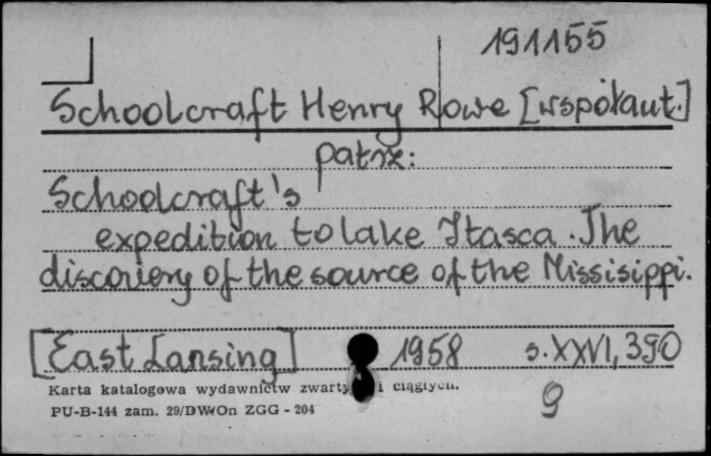 191155
Schoolcraft Henry Rowe [współaut.]
patrz:
Schoolcraft's
expedition to lake Itasca. The
discovery of the source of the Missisippi.
[East Lansing] 1958 s. XXVI, 390
Karta katalogowa wydawnictw zwartych i ciągłych.
PU-B-144 zam. 29/DWOn ZGG - 204
9